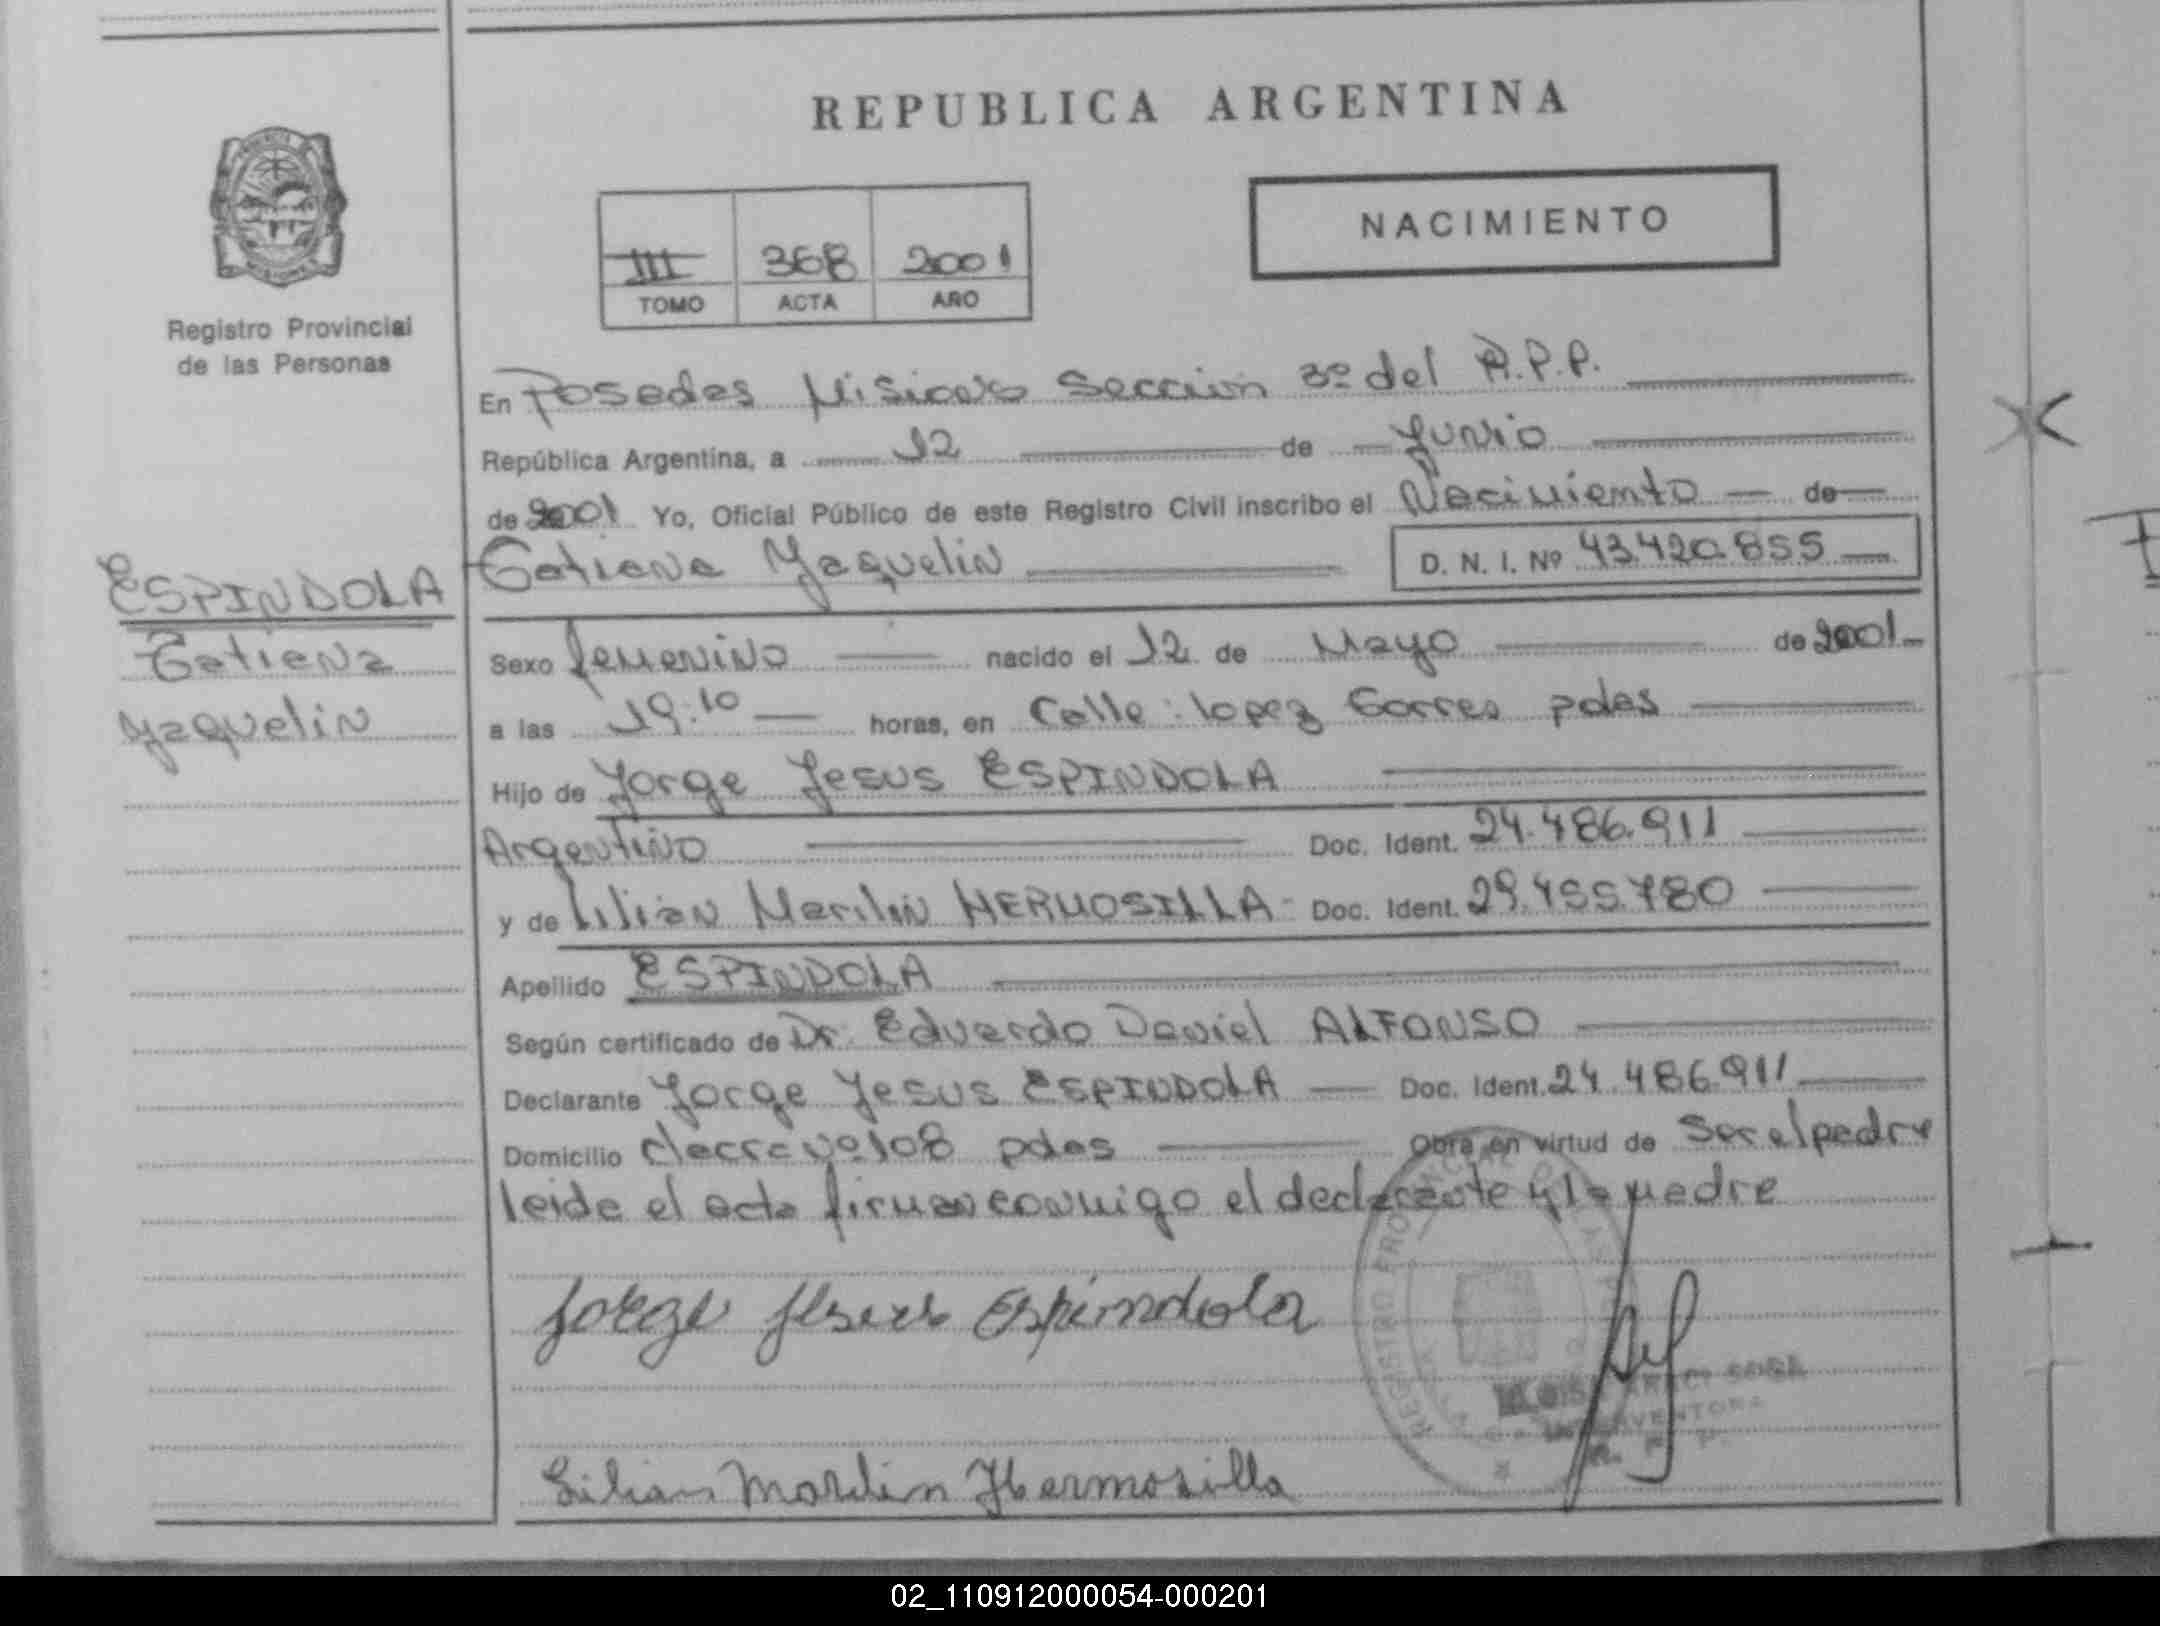 REPUBLICA ARGENTINA
NACIMIENTO
III 368 2001
TOMO ACTA AÑO
Registro Provincial
de las Personas
En Posadas Misiones Sección 3º del R.P.P.
República Argentina, a 12 de Junio
de 2001 Yo, Oficial Público de este Registro Civil inscribo el Nacimiento de
Tatiana Yaquelin D. N. I. Nº 43.420.855
ESPINDOLA
Tatiana
Yaquelin
Sexo femenino nacido el 12 de Mayo de 2001
a las 19:10 horas, en Calle: lopez Torres pdas
Hijo de Jorge Jesus ESPINDOLA
Argentino Doc. Ident. 24.486.911
y de Lilian Marilin HERMOSILLA Doc. Ident. 29.455.780
Apellido ESPINDOLA
Según certificado de Dr. Eduardo Daniel ALFONSO
Declarante Jorge Jesus ESPINDOLA Doc. Ident. 24.486.911
Domicilio chacra nº 108 pdas Obra en virtud de Ser el padre
leida el acta firman conmigo el declarante y la madre
Jorge Jesus Espindola
Lilian Marilin Hermosilla
REGISTRO PROVINCIAL DE LAS
ARACI SOSA
INTERVENTORA
R. P. P.
02_110912000054-000201